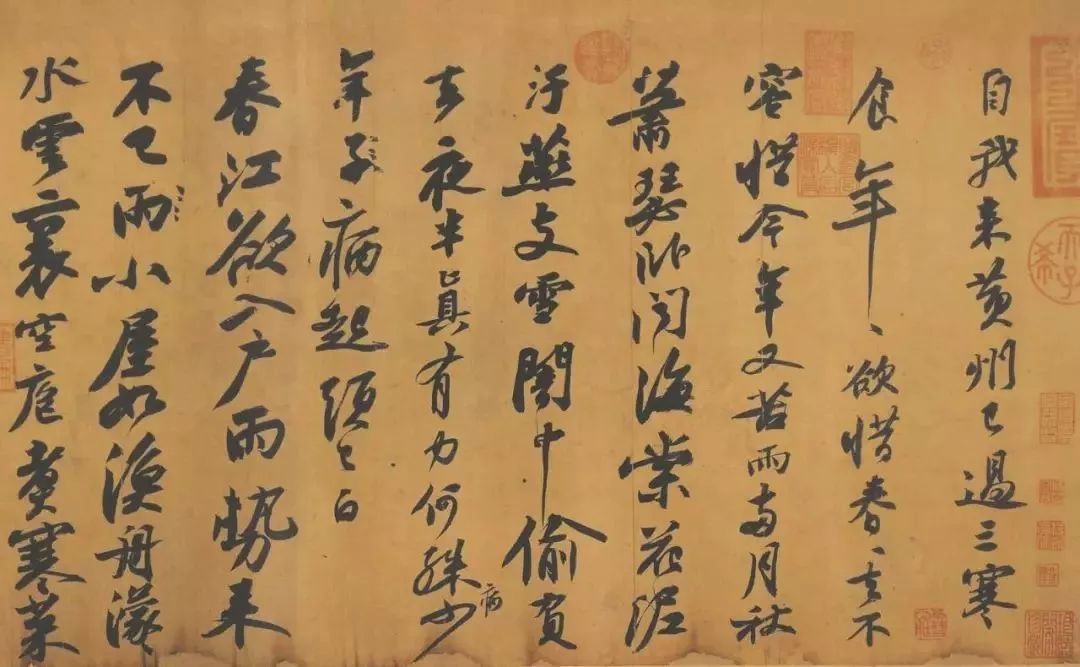 自我來黃州已過三寒
食年〻欲惜春〻去不
容惜今年又苦雨兩月秋
蕭瑟卧聞海棠花泥
汙燕支雪闇中偷負
去夜半真有力何殊少病
年子病起頭已白
春江欲入户雨勢來
不已雨小屋如漁舟濛〻
水雲裏空庖煮寒菜